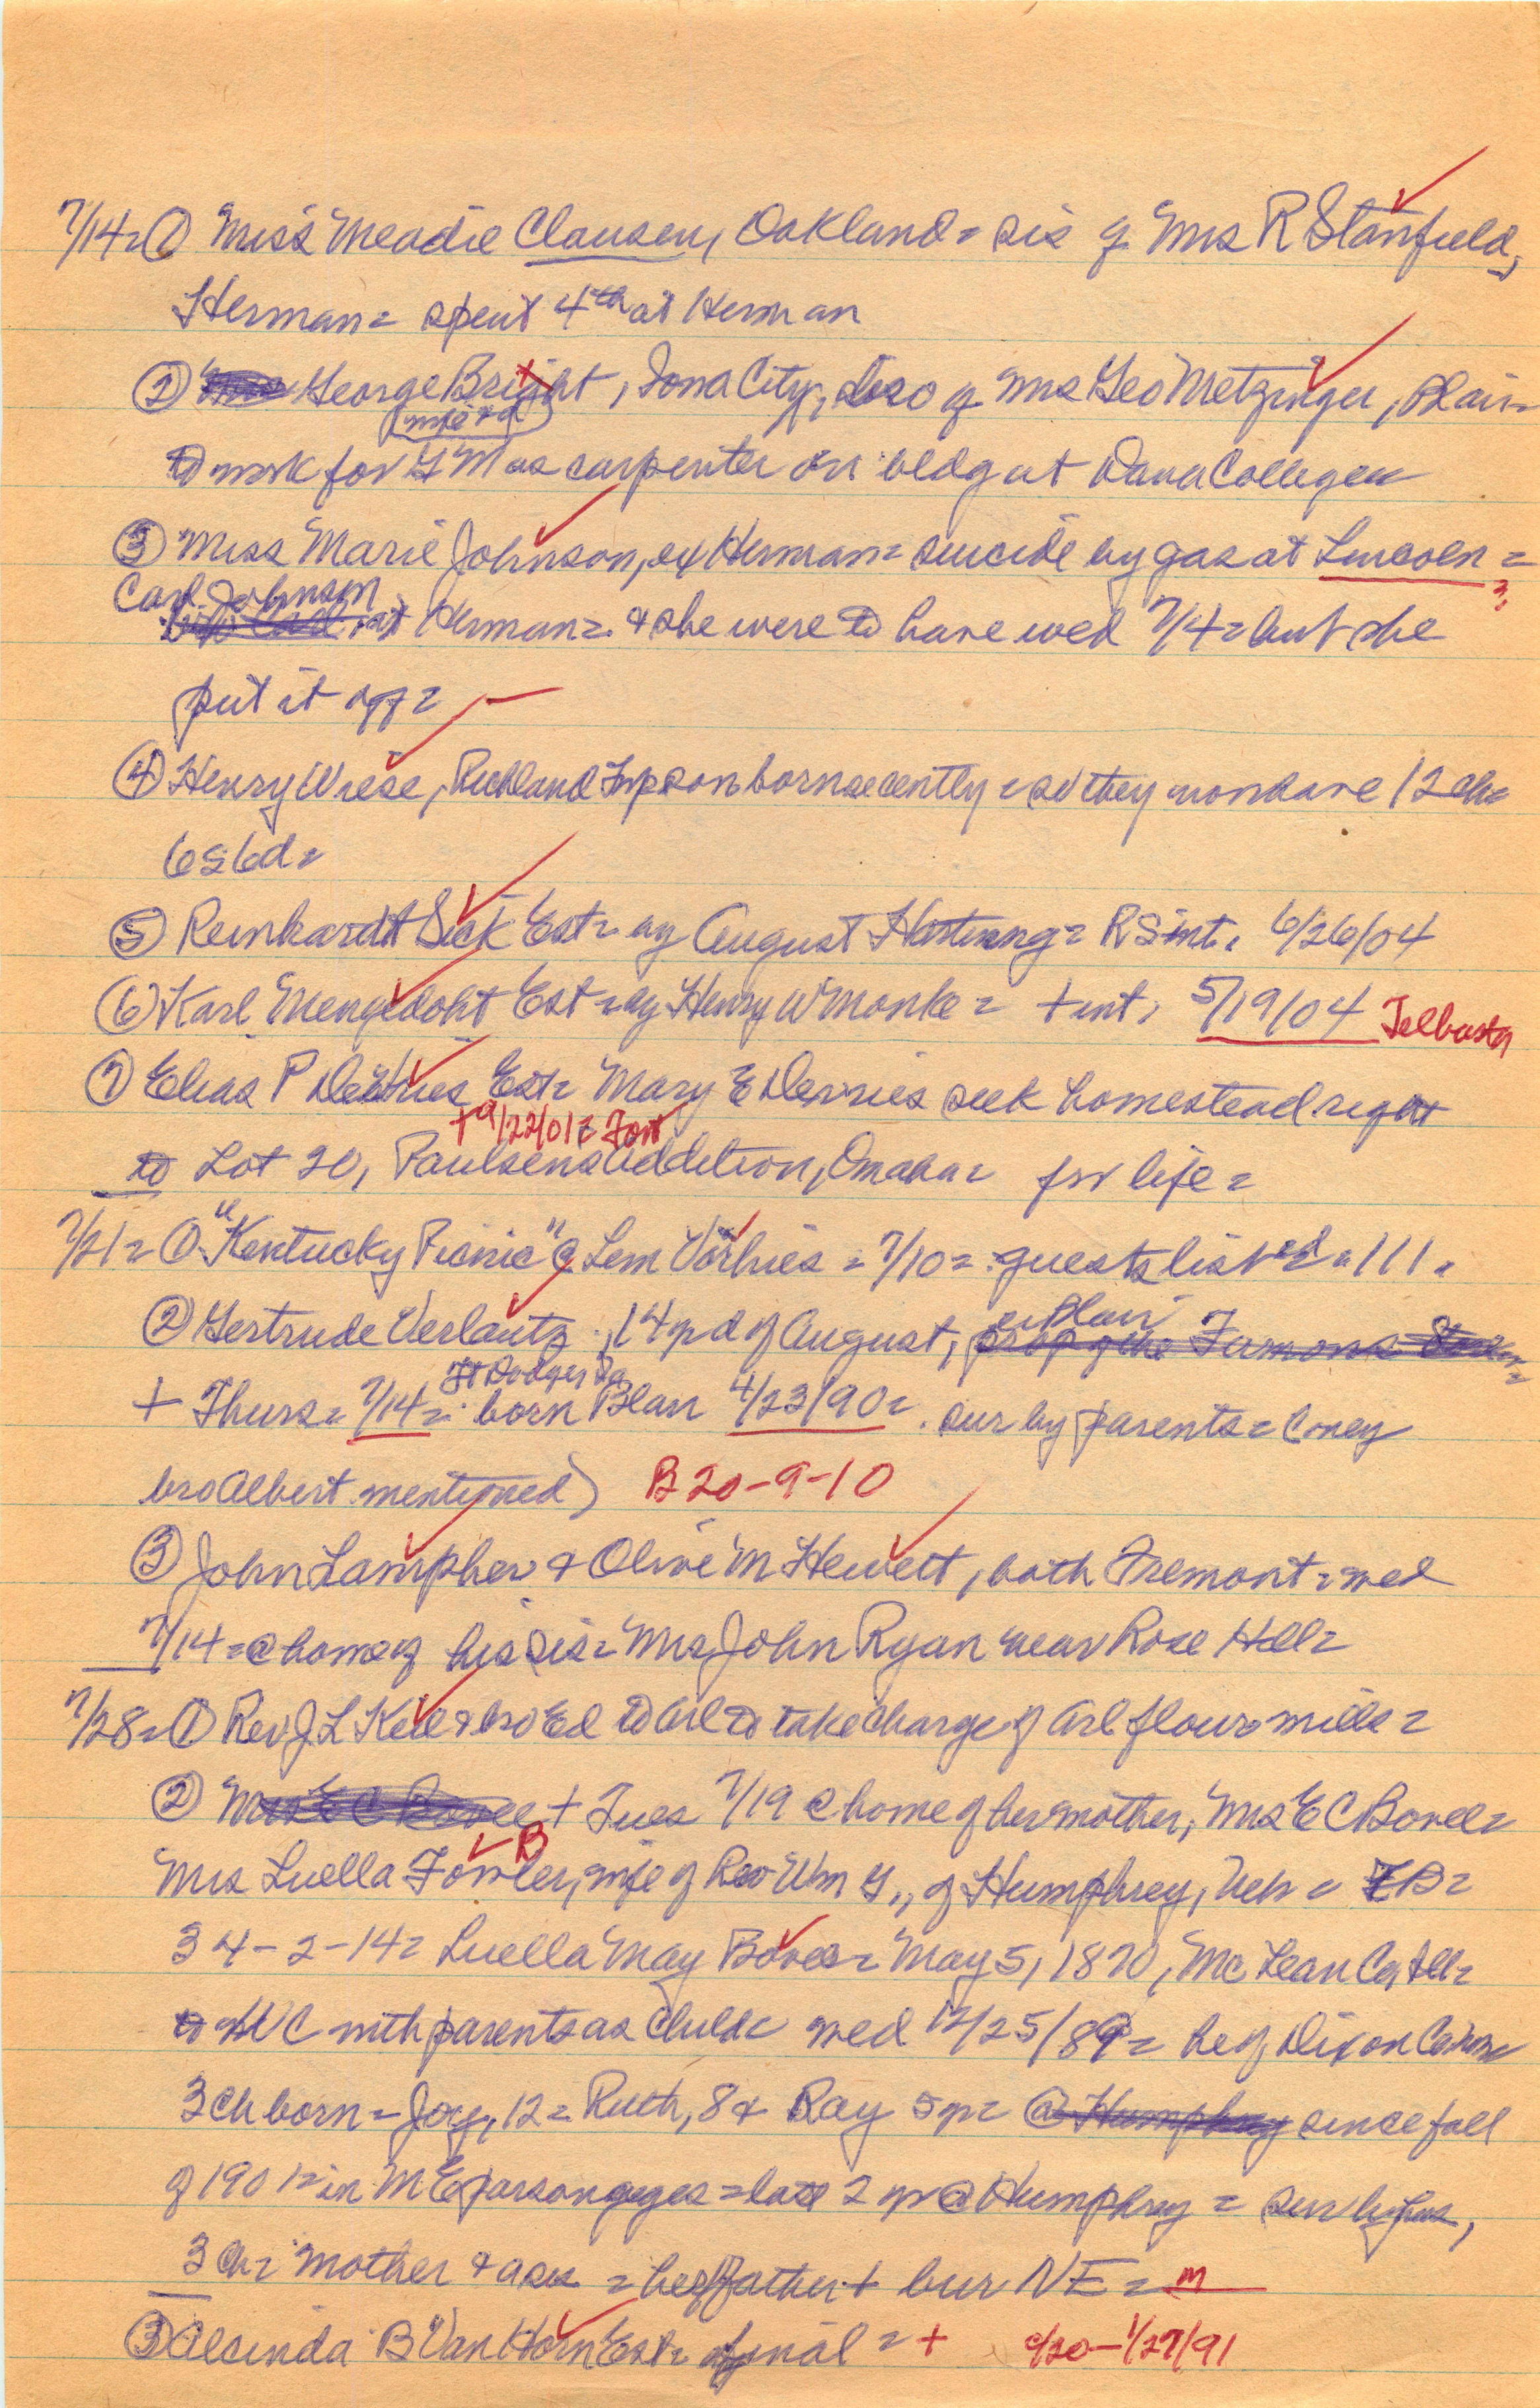 7/14= ① Miss Meadie Clausen, Oakland = sis of Mrs R Stanfield,
Herman = spent 4th at Herman
② George Bright, Iona City, bro of Mrs Geo Metzinger, Blair =
wife + d
to work for G M as carpenter on bldg at Dana College
③ Miss Marie Johnson, of Herman = suicide by gas at Lincoln =
Carl Johnson
at Herman = & she were to have wed 7/4 = but she
put it off =
④ Henry Wiese, Richland Twp son born recently = so they now have 12 ch =
6s 6d =
⑤ Reinhardt Sick Est = by August Hartung = RS int. 6/26/04
⑥ Karl Mengedoht Est = by Henry W Monke = + int. 5/19/04 Telbasta
⑦ Elias P DeVries Est = Mary E Devries seek homestead right
+ 9/22/01 = Font
to Lot 20, Paulsens Addition, Omaha = for life =
7/21 = ① "Kentucky Picnic" @ Lem Vorhies = 7/10 = guests listed = 111 =
② Gertrude Verlautz, 14 y d of August, Blair
+ Thurs = 7/14 = Ft Dodge, Ia born Blair 4/23/90 = sur by parents = (only
bro Albert mentioned) B 20-9-10
③ John Lampher & Olive M Hewett, both Fremont = wed
7/14 = @ home of his sis = Mrs John Ryan near Rose Hill =
7/28 = ① Rev J L Kell & bro Ed to Arl to take charge of Arl flour mills =
② + Tues 7/19 @ home of her mother, Mrs E C Bovee =
B
Mrs Luella Fowler, wife of Rev Wm G., of Humphrey, Neb = B =
34-2-14 = Luella May Bovee = May 5, 1870, McLean Co, Ill =
to WC with parents as child = wed 12/25/89 = he of Dixon Co
3 ch born = Joy, 12 = Ruth, 8 & Ray 5 yr = @ Humphrey since fall
of 1901 = in ME parsonages = last 2 yr @ Humphrey = sur by hus,
3 ch = mother & = her father + bur NE = m
③ Alcinda B Van Horn Est = final = + c/20 - 1/27/91